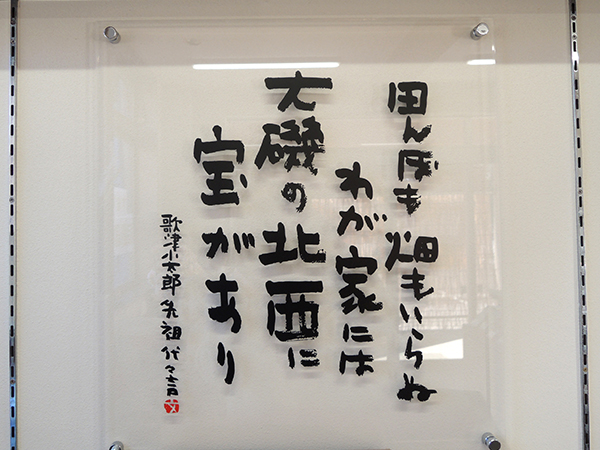 田んぼも畑もいらぬ
わが家には
大磯の北西に
宝があり
歌津小太郎先祖代々言